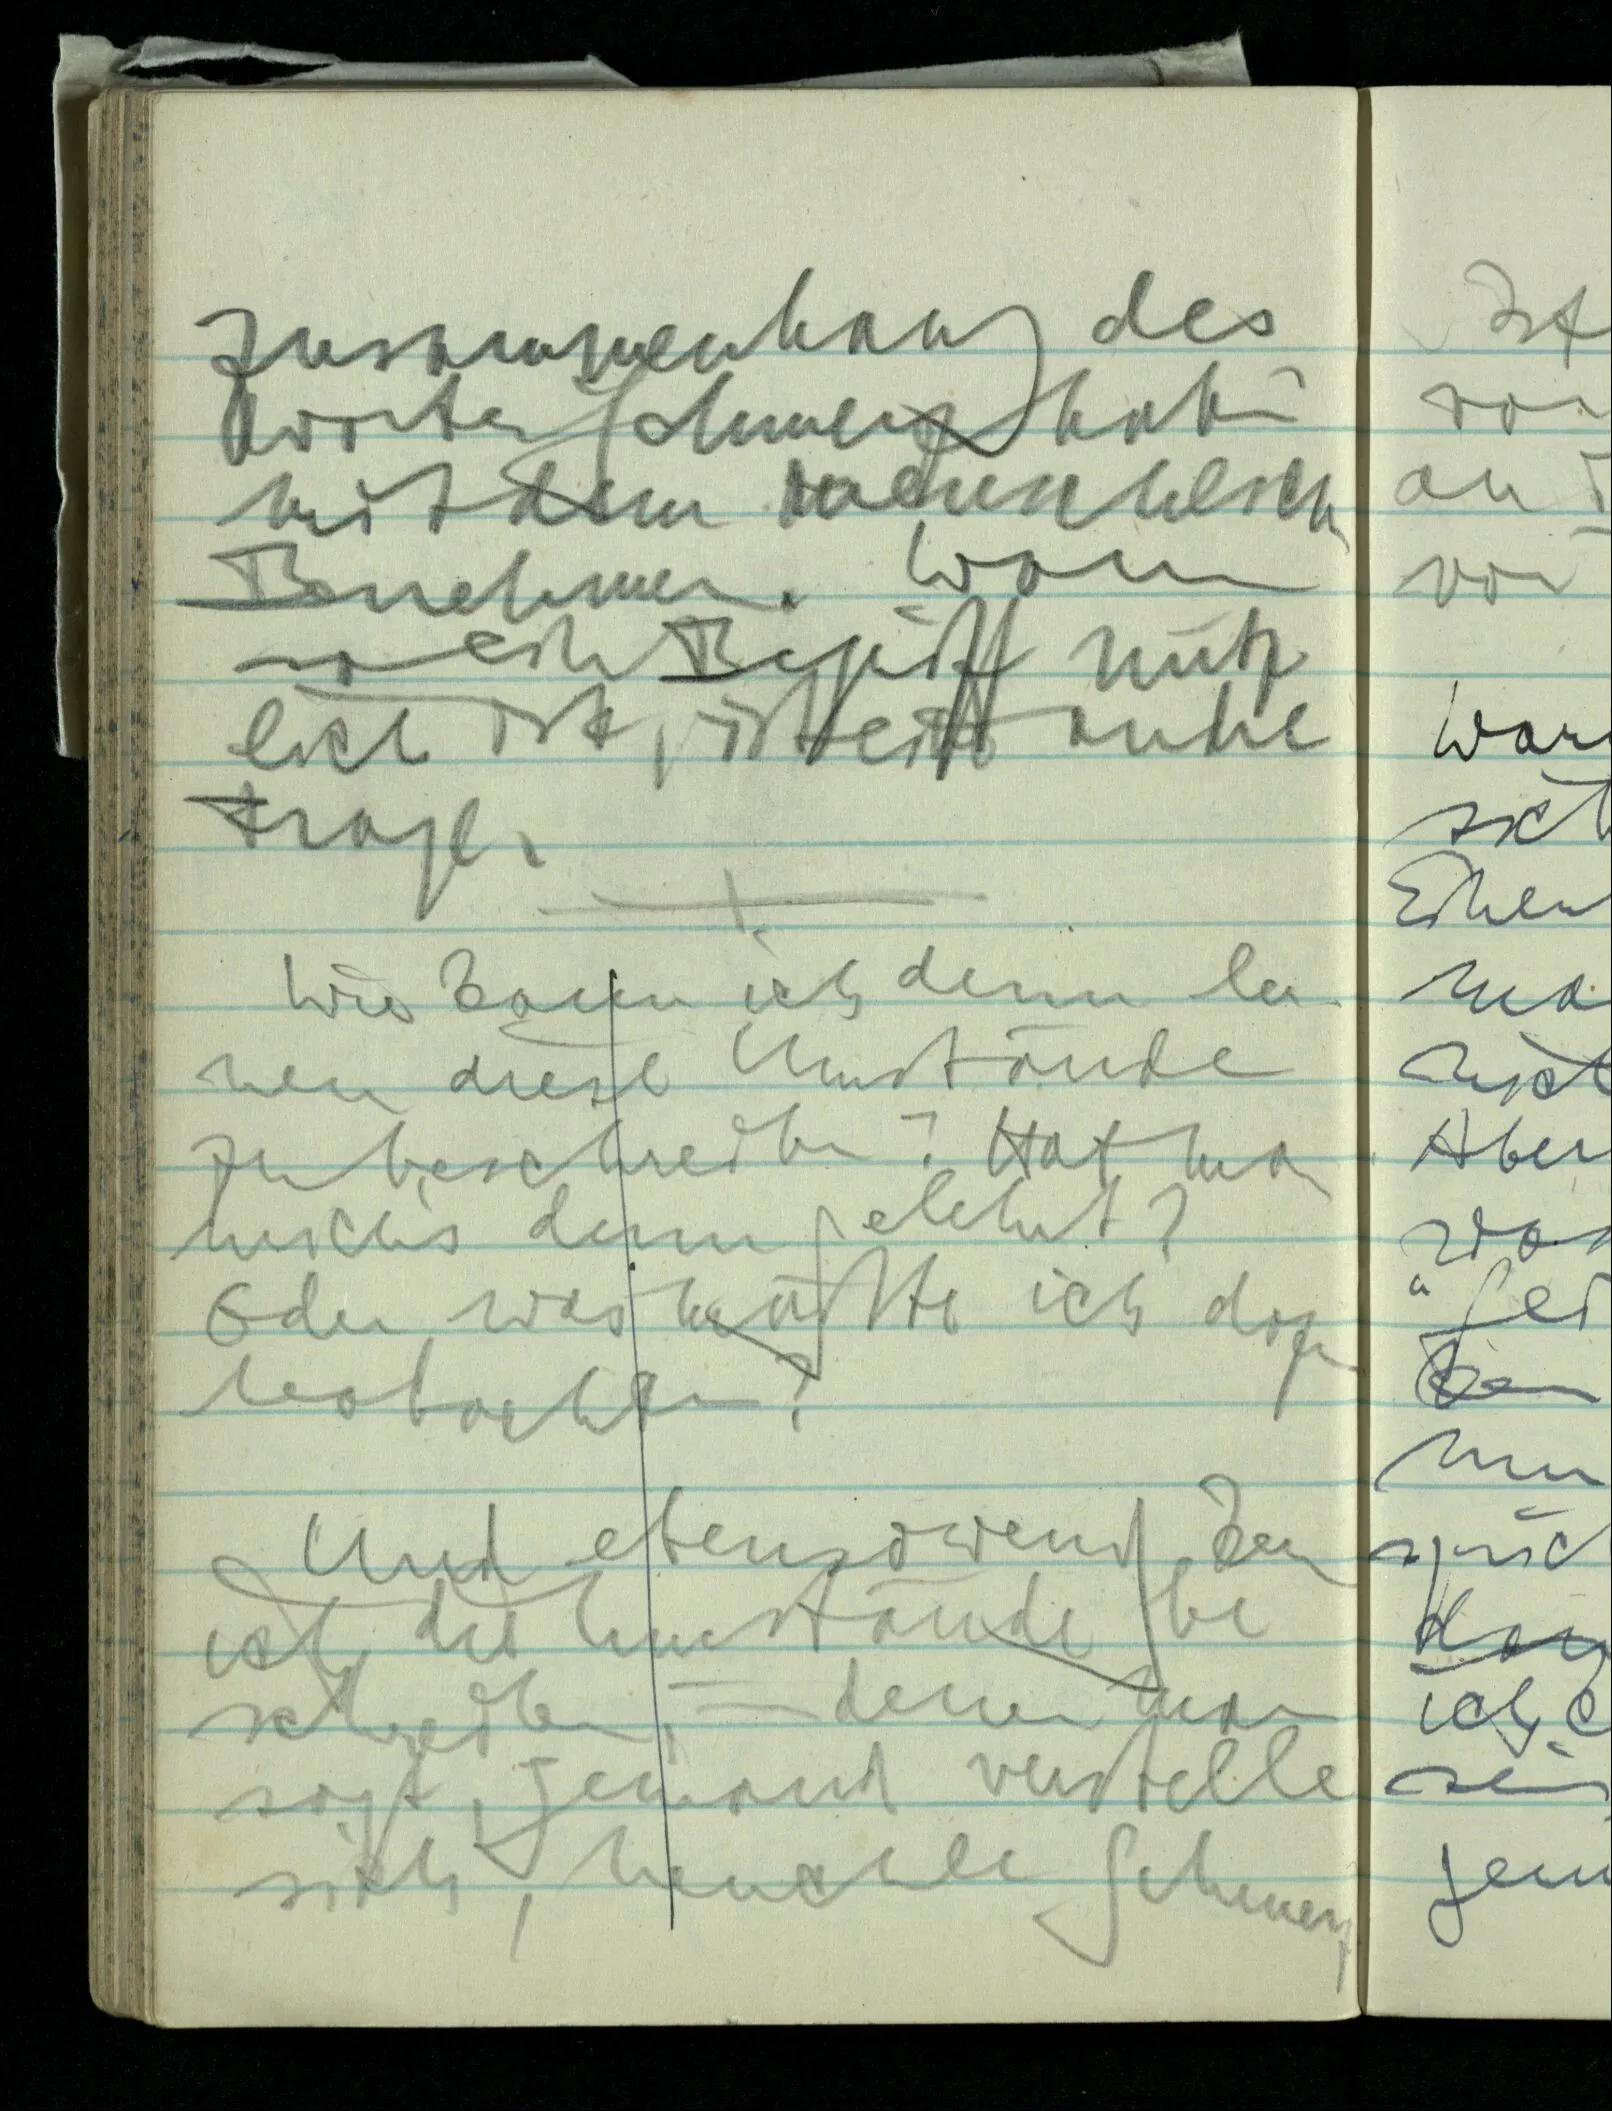 Zusammenhang des
Wortes Schmerz haben
mit dem menschlichen
Benehmen. Wann
so ein Begriff nütz
lich ist, ist eine andre
Frage.
Wie kann ich denn ler
nen diese Umstände
zu beschreiben? Hat man
mich's denn gelehrt?
Oder was müßte ich dazu
beobachten?
Und ebensowenig kann
ich die Umstände be
schreiben, = denen man
sagt, jemand verstelle
sich, heuchle Schmerz
Ist
von
an
vor
War
sict
Aber
"
nun
ich
sein
jem